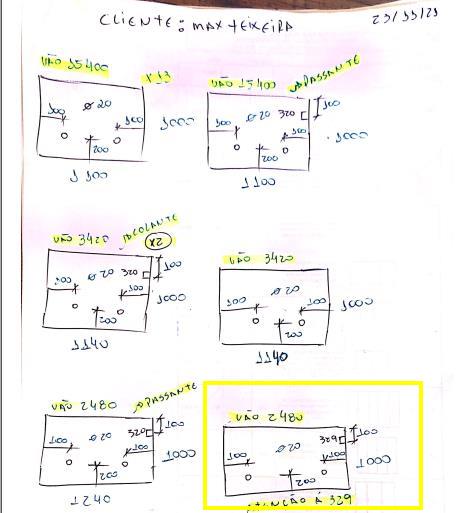 CLIENTE: MAX TEIXEIRA
23/11/21
VÃO 15400
x13
100
ø 20
100
200
1000
1100
VÃO 15400
PASSANTE
100
ø 20
320
100
100
200
1000
1100
VÃO 3420
x2
100
ø 20
320
100
100
200
1000
1140
VÃO 3420
100
ø 20
100
200
1000
1140
VÃO 2480
PASSANTE
100
ø 20
320
100
100
200
1000
1240
VÃO 2480
100
ø 20
329
100
100
200
1000
ATENÇÃO À 329